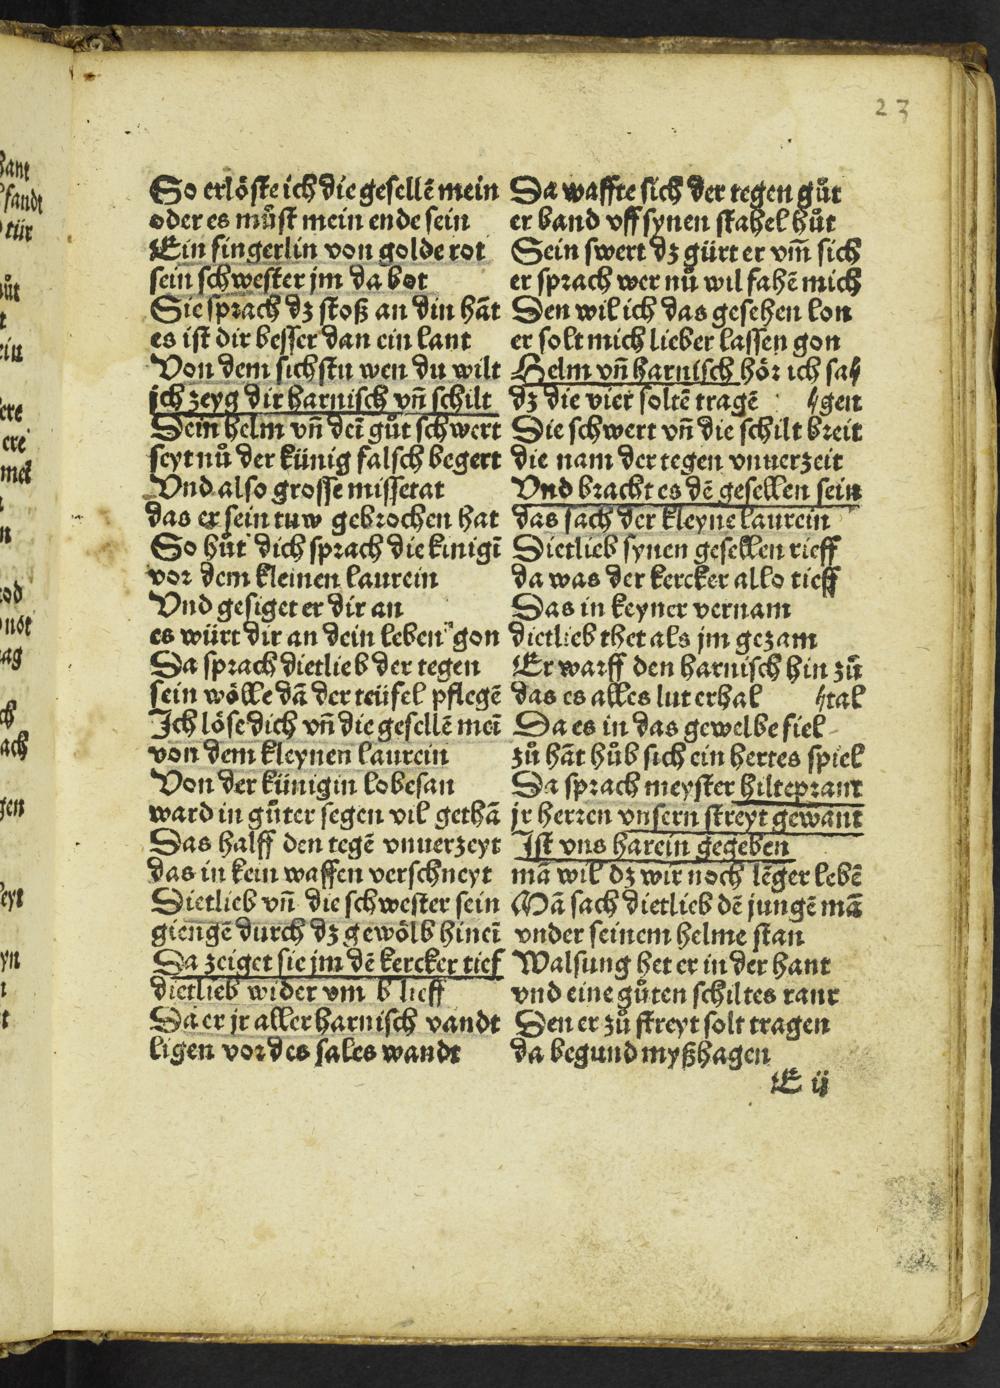 23
So erlöste ich die gesellē mein
oder es můst mein ende sein
Ein fingerlin von golde rot
sein schwester jm da bot
Sie sprach dz stoß an din hāt
es ist dir besser dan ein lant
Von dem sichstu wen du wilt
ich zeyg dir harnisch vn̄ schilt
Dein helm vn̄ deī gůt schwert
seyt nů der künig falsch begert
Vnd also grosse missetat
das er sein tuw gebrochen hat
So hůt dich sprach die kinigī
vor dem kleinen laurein
Vnd gesiget er dir an
es würt dir an dein leben gon
Da sprach dietlieb der tegen
sein wölle dā der teüfel pflegē
Ich löse dich vn̄ die gesellē meī
von dem kleynen laurein
Von der künigin lobesan
ward in gůter segen vil gethā
Das halff den tegē vnuerzeyt
das in kein waffen verschneyt
Dietlieb vn̄ die schwester sein
giengē durch dz gewölb hineī
Da zeiget sie jm dē kercker tief
dietlieb wider vm b lieff
Da er jr aller harnisch vandt
ligen vor des sales wandt
Da waffte sich der tegen gůt
er band vff synen stahel hůt
Sein swert dz gürt er vm̄ sich
er sprach wer nů wil fahē mich
Den wil ich das gesehen lon
er solt mich lieber lassen gon
Helm vn̄ harnisch hör ich sa//
dz die vier soltē tragē //gen
Die schwert vn̄ die schilt breit
die nam der tegen vnuerzeit
Vnd bracht es dē gesellen sein
das sach der kleyne laurein
Dietlieb synen gesellen rieff
da was der kercker allo tieff
Das in keyner vernam
dietlieb thet als jm gezam
Er warff den harnisch hin zů
das es alles lut erhal //tal
Da es in das gewelbe fiel
zů hāt hůb sich ein hertes spiel
Da sprach meyster hilteprant
jr herren vnsern streyt gewant
Ist vns harein gegeben
mā wil dz wir noch lēger lebē
Mā sach dietlieb dē jungē mā
vnder seinem helme stan
Walsung het er in der hant
vnd eine gůten schiltes rant
Den er zů streyt solt tragen
da begund myßhagen
E ij